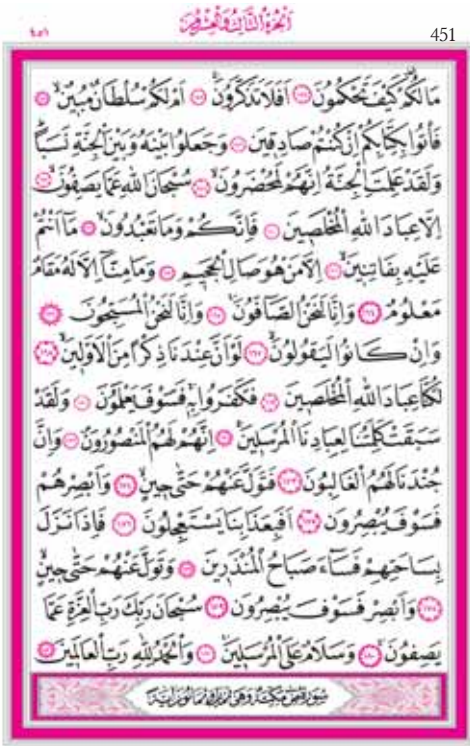 ٤٥١ الجزء الثالث والعشرون 451
مَا لَكُمْ كَيْفَ تَحْكُمُونَ ١٥٤ اَفَلَا تَذَكَّرُونَ ١٥٥ اَمْ لَكُمْ سُلْطَانٌ مُبِينٌ ١٥٦
فَأْتُوا بِكِتَابِكُمْ اِنْ كُنْتُمْ صَادِقِينَ ١٥٧ وَجَعَلُوا بَيْنَهُ وَبَيْنَ الْجِنَّةِ نَسَبًا
وَلَقَدْ عَلِمَتِ الْجِنَّةُ اِنَّهُمْ لَمُحْضَرُونَ ١٥٨ سُبْحَانَ اللّٰهِ عَمَّا يَصِفُونَ ١٥٩
اِلَّا عِبَادَ اللّٰهِ الْمُخْلَصِينَ ١٦٠ فَاِنَّكُمْ وَمَا تَعْبُدُونَ ١٦١ مَا اَنْتُمْ
عَلَيْهِ بِفَاتِنِينَ ١٦٢ اِلَّا مَنْ هُوَ صَالِ الْجَحِيمِ ١٦٣ وَمَا مِنَّا اِلَّا لَهُ مَقَامٌ
مَعْلُومٌ ١٦٤ وَاِنَّا لَنَحْنُ الصَّافُّونَ ١٦٥ وَاِنَّا لَنَحْنُ الْمُسَبِّحُونَ ١٦٦
وَاِنْ كَانُوا لَيَقُولُونَ ١٦٧ لَوْ اَنَّ عِنْدَنَا ذِكْرًا مِنَ الْاَوَّلِينَ ١٦٨
لَكُنَّا عِبَادَ اللّٰهِ الْمُخْلَصِينَ ١٦٩ فَكَفَرُوا بِهِ فَسَوْفَ يَعْلَمُونَ ١٧٠ وَلَقَدْ
سَبَقَتْ كَلِمَتُنَا لِعِبَادِنَا الْمُرْسَلِينَ ١٧١ اِنَّهُمْ لَهُمُ الْمَنْصُورُونَ ١٧٢ وَاِنَّ
جُنْدَنَا لَهُمُ الْغَالِبُونَ ١٧٣ فَتَوَلَّ عَنْهُمْ حَتّٰى حِينٍ ١٧٤ وَاَبْصِرْهُمْ
فَسَوْفَ يُبْصِرُونَ ١٧٥ اَفَبِعَذَابِنَا يَسْتَعْجِلُونَ ١٧٦ فَاِذَا نَزَلَ
بِسَاحَتِهِمْ فَسَاءَ صَبَاحُ الْمُنْذَرِينَ ١٧٧ وَتَوَلَّ عَنْهُمْ حَتّٰى حِينٍ
١٧٨ وَاَبْصِرْ فَسَوْفَ يُبْصِرُونَ ١٧٩ سُبْحَانَ رَبِّكَ رَبِّ الْعِزَّةِ عَمَّا
يَصِفُونَ ١٨٠ وَسَلَامٌ عَلَى الْمُرْسَلِينَ ١٨١ وَالْحَمْدُ لِلّٰهِ رَبِّ الْعَالَمِينَ ١٨٢
سورة ص مكية وهي ثمان وثمانون آية